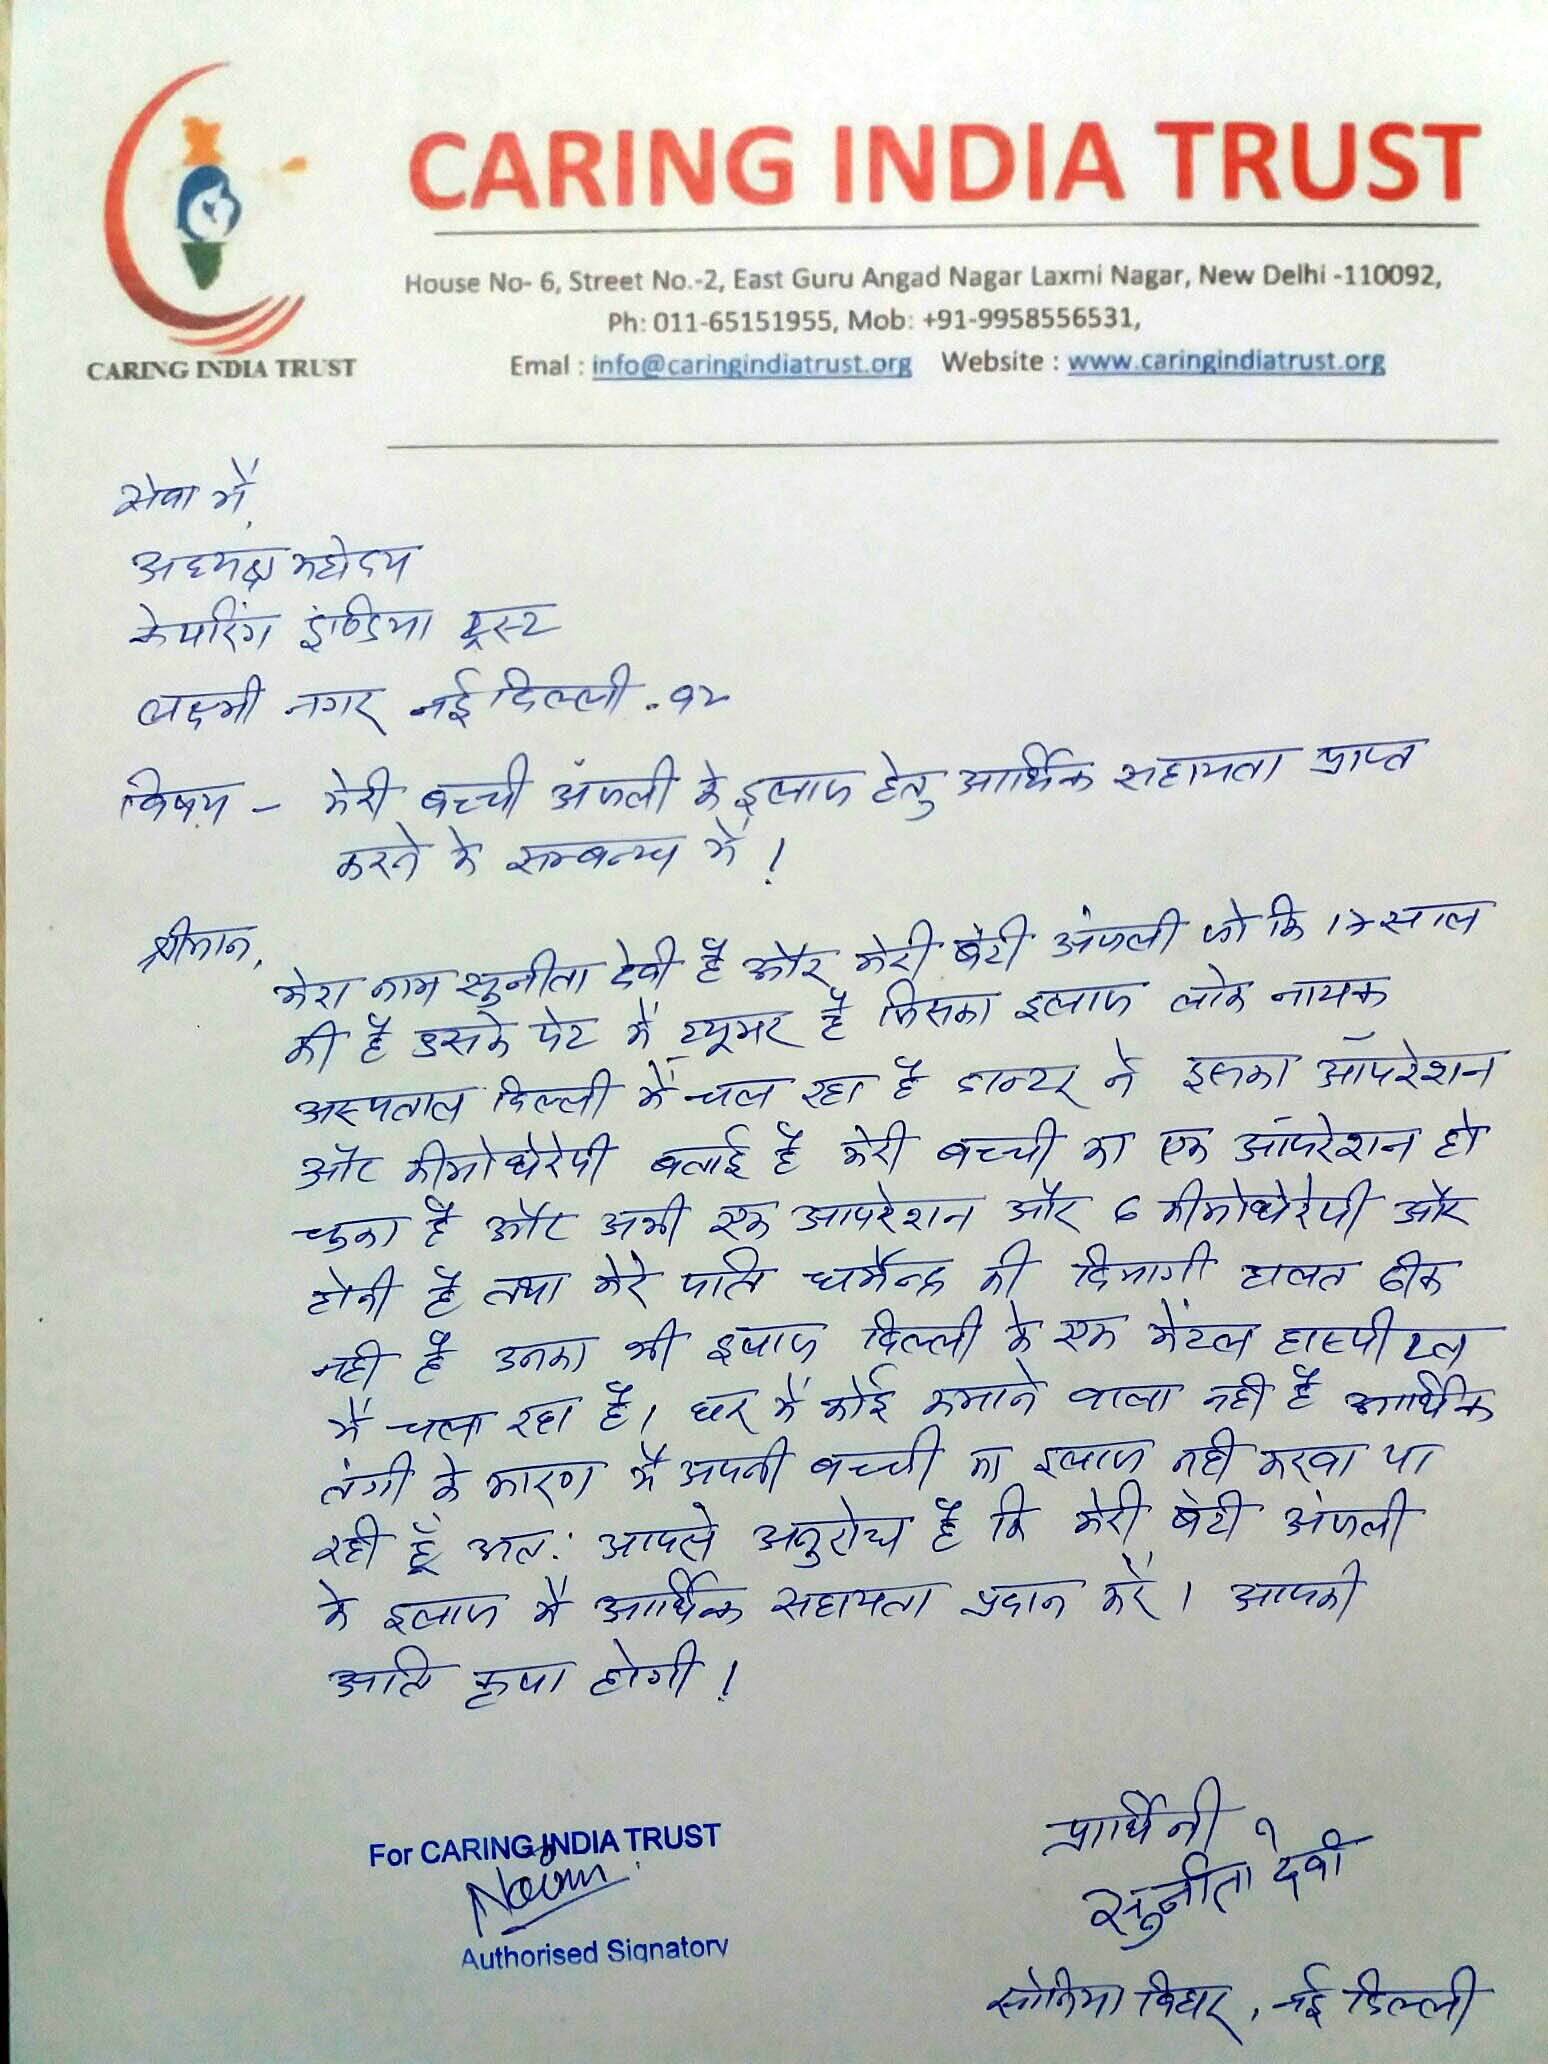 CARING INDIA TRUST
House No- 6, Street No.-2, East Guru Angad Nagar Laxmi Nagar, New Delhi -110092,
Ph: 011-65151955, Mob: +91-9958556531,
Emal : info@caringindiatrust.org Website : www.caringindiatrust.org
CARING INDIA TRUST
सेवा में,
अध्यक्ष महोदय
केयरिंग इंण्डिया ट्रस्ट
लक्ष्मी नगर नई दिल्ली - ९२
विषय - मेरी बच्ची अंजली के इलाज हेतु आर्थिक सहायता प्राप्त
करने के सम्बन्ध में !
श्रीमान,
मेरा नाम सुनीता देवी है और मेरी बेटी अंजली जो कि साल
की है उसके पेट में ट्यूमर है जिसका इलाज लोक नायक
अस्पताल दिल्ली में चल रहा है डाक्टर ने इसका ऑपरेशन
और कीमोथेरेपी बताई है मेरी बच्ची का एक ऑपरेशन हो
चुका है और अभी एक आपरेशन और 6 कीमोथेरेपी और
होनी है तथा मेरे पति धर्मेन्द्र की दिमागी हालत ठीक
नही है उनका भी इलाज दिल्ली के एक मेंटल हास्पीटल
में चला रहा है। घर में कोई कमाने वाला नही है आर्थिक
तंगी के कारण मै अपनी बच्ची का इलाज नही करवा पा
रही हूँ अत: आपसे अनुरोध है कि मेरी बेटी अंजली
के इलाज मै आर्थिक सहायता प्रदान करें । आपकी
अति कृपा होगी !
For CARING INDIA TRUST
Authorised Signatory
प्रार्थिनी
सुनीता देवी
सोनिया विहार, नई दिल्ली